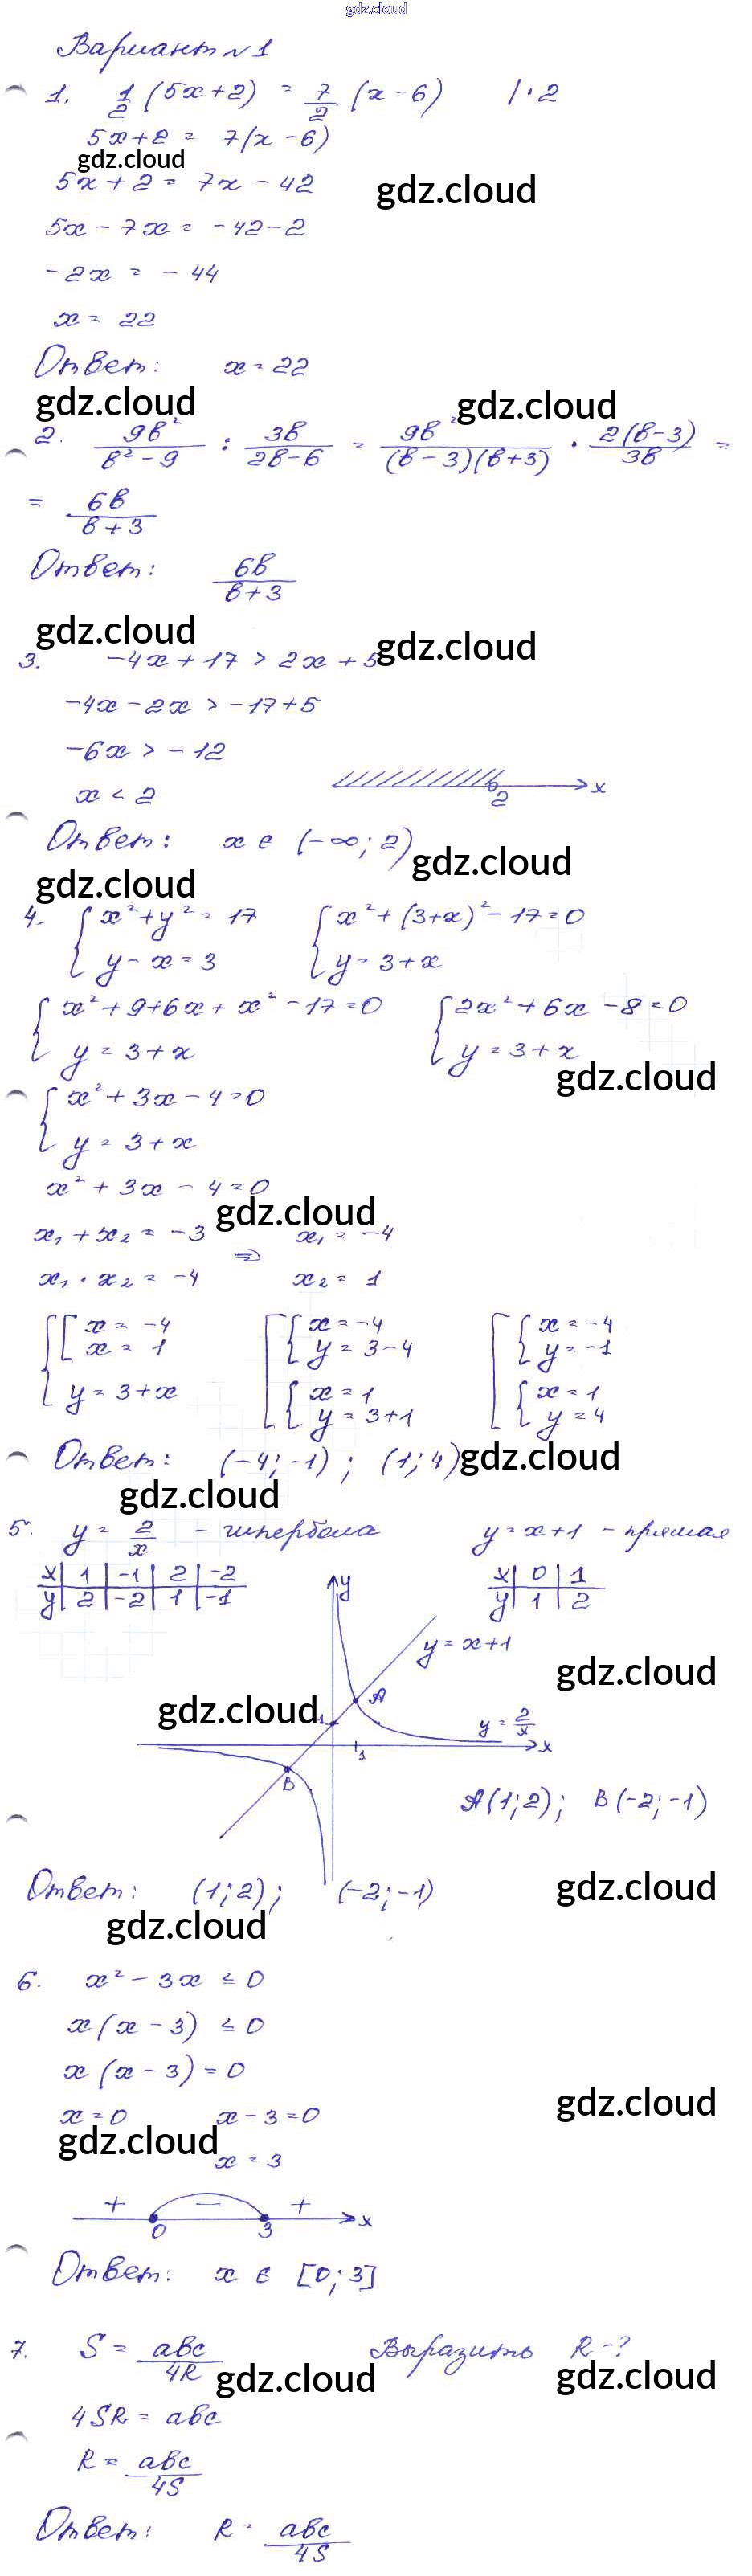 gdz.cloud
Вариант №1
1. 1/2 (5x+2) = 7/2 (x-6) | · 2
5x+2 = 7(x-6)
gdz.cloud
5x+2 = 7x-42
gdz.cloud
5x-7x = -42-2
-2x = -44
x = 22
Ответ: x=22
gdz.cloud gdz.cloud
2. 9b²/(b²-9) : 3b/(2b-6) = 9b²/((b-3)(b+3)) · 2(b-3)/3b =
= 6b/(b+3)
Ответ: 6b/(b+3)
gdz.cloud gdz.cloud
3. -4x+17 > 2x+5
-4x-2x > -17+5
-6x > -12
x < 2
2 x
Ответ: x ∈ (-∞; 2)
gdz.cloud
gdz.cloud
4. { x²+y²=17 { x²+(3+x)²-17=0
y-x=3 y=3+x
{ x²+9+6x+x²-17=0 { 2x²+6x-8=0
y=3+x y=3+x
gdz.cloud
{ x²+3x-4=0
y=3+x
x²+3x-4=0
gdz.cloud
x₁+x₂=-3 ⇒ x₁=-4
x₁·x₂=-4 x₂=1
{ [ x=-4 [ { x=-4 [ { x=-4
x=1 y=3-4 y=-1
y=3+x { x=1 { x=1
y=3+1 y=4
Ответ: (-4;-1); (1;4)
gdz.cloud
gdz.cloud
5. y = 2/x - гипербола y=x+1 - прямая
x | 1 | -1 | 2 | -2 x | 0 | 1
y | 2 | -2 | 1 | -1 y | 1 | 2
y
y=x+1
gdz.cloud
A
gdz.cloud
1
y = 2/x
1
x
B
A(1;2); B(-2;-1)
Ответ: (1;2); (-2;-1)
gdz.cloud
gdz.cloud
6. x²-3x ≤ 0
x(x-3) ≤ 0
x(x-3)=0
gdz.cloud
x=0 x-3=0
gdz.cloud
x=3
+ - +
0 3 x
Ответ: x ∈ [0;3]
7. S = abc/4R Выразить R-?
gdz.cloud gdz.cloud
4SR = abc
R = abc/4S
Ответ: R = abc/4S